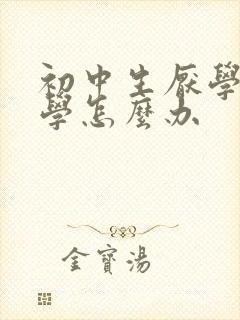 初中生厭學
學怎麼办
金寶湯